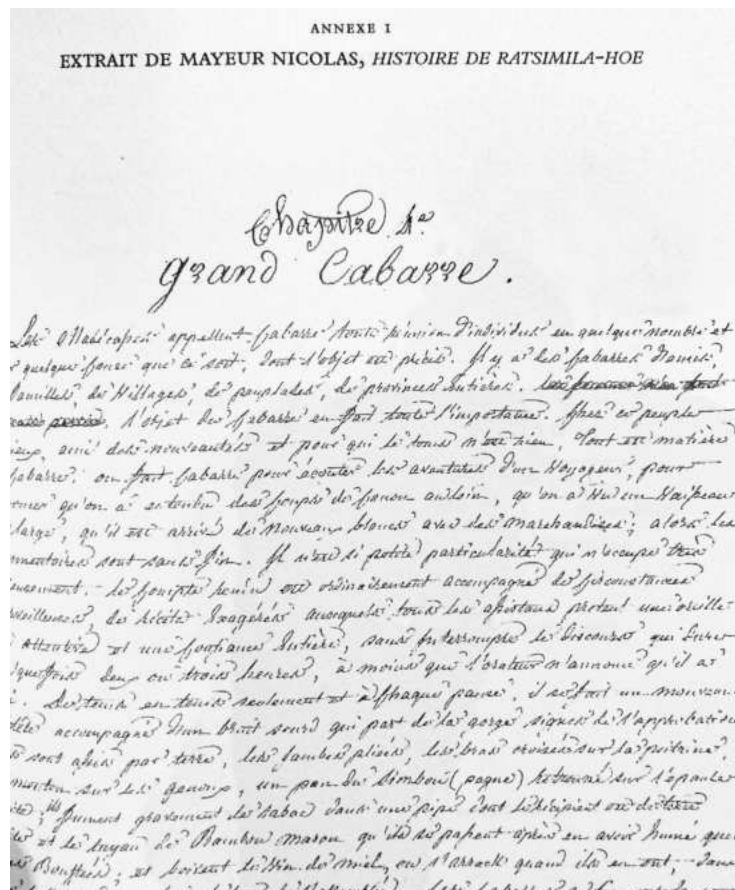 ANNEXE I
EXTRAIT DE MAYEUR NICOLAS, HISTOIRE DE RATSIMILA-HOE
Chapitre 4e.
Grand Cabarre.
Les appellent Cabarre toute réunion d'individus en quelque nombre et
quelque que ce soit, dont l'objet est précis. Il y a les Cabarres d'amis
de Villages, de peuplades, de provinces Entières.
l'objet du Cabarre en fait toute l'importance. Chez ce peuple
ami des nouveautés et pour qui le tems n'est rien, Tout est matière
Cabarre. on fait Cabarre pour écouter les aventures d'un Voyageur, pour
qu'on a entendu des Coups de Canon au loin, qu'on a Vu un Vaisseau
large, qu'il est arrivé de nouveaux blancs avec des Marchandises; alors les
sont sans fin. Il n'est si petite particularité qui n'occupe très
le Compte rendu est ordinairement accompagné de Circonstances
de récits Exagérés auxquels tous les assistans prêtent une oreille
Attentive et une Confiance Entière, sans Interrompre le Discours qui Dure
deux ou trois heures, à moins que l'orateur n'annonce qu'il a
De tems en tems seulement et à Chaque pause, il se fait un
accompagné d'un bruit sourd qui part de la gorge signes de l'approbation
sont assis par terre, les Jambes pliées, les bras croisés sur la poitrine,
menton sur les genoux, un pan du Simbou (pagne) Retourné sur l'épaule
ils fument gravement du tabac dans une pipe dont le récipient est de terre
et le tuyau de Bambou maron qu'ils se passent après en avoir humé
Bouffées, et boivent le Vin de miel, ou l'arrack quand ils en ont; dans